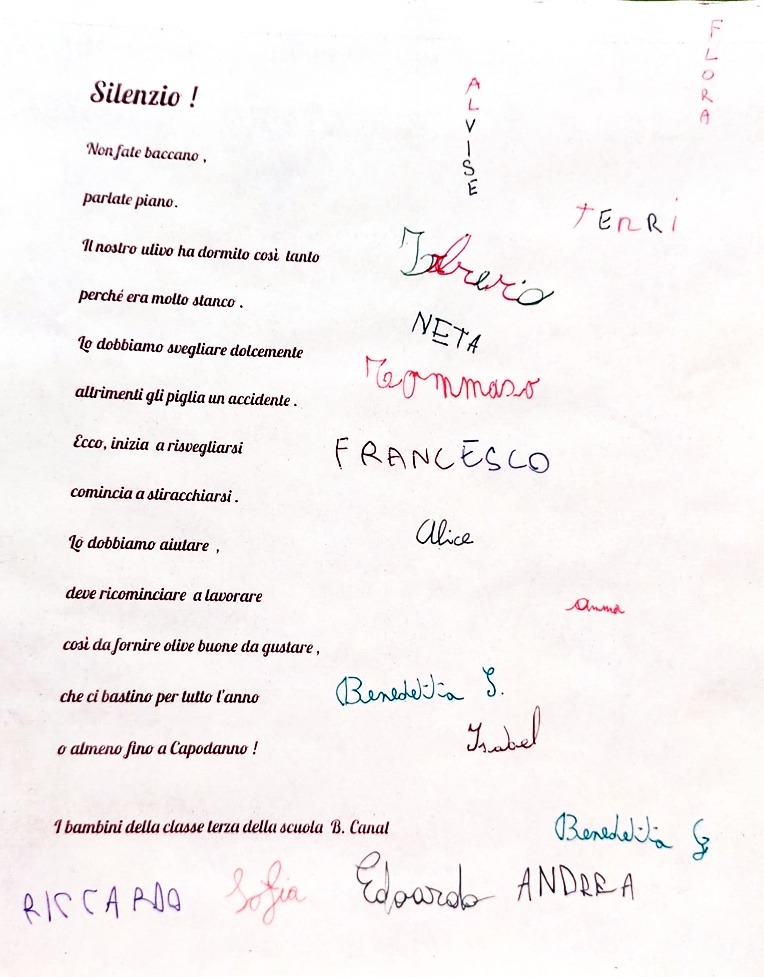 FLORA
Silenzio !
ALVISE
Non fate baccano ,
parlate piano.
TENRI
Il nostro ulivo ha dormito così tanto
perché era molto stanco .
NETA
Lo dobbiamo svegliare dolcemente
Tommaso
altrimenti gli piglia un accidente .
Ecco, inizia a risvegliarsi
FRANCESCO
comincia a stiracchiarsi .
Alice
Lo dobbiamo aiutare ,
deve ricominciare a lavorare
Anna
così da fornire olive buone da gustare ,
che ci bastino per tutto l'anno
Benedetta S.
Isabel
o almeno fino a Capodanno !
I bambini della classe terza della scuola B. Canal
Benedetta G
RICCARDO Sofia Edoardo ANDREA